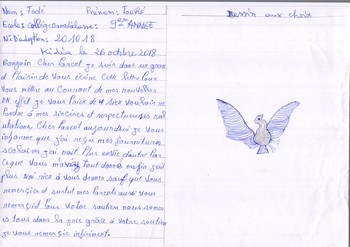 Nom : Fodé Prénom : Touré
Ecole : Collège Damakania : 9ème ANNEE
N: D'adoption : 201018
Dessin aux choix
Kindia le 26 octobre 2018
Bonjour Cher Parent Je suis dans un grand
Plaisir de Vous écrire Cette lettre Pour
Vous mettre au Courant de mes nouvelles
EN effet Je vous Prie de M vouloir
à mes sincères et respectueuses sal
utations. Cher Parent aujourd'hui Je vous
informe que J'ai reçu mes fournitures
scolaires J'ai Plus envie d'autre Par
Ce que Vous m'avez Tout donné enfin J'ai
plus Rien à vous donner sauf que Vous
remercier et surtout mes Parents aussi Vous
remercient Pour Votre soutien nous somm
es tous dans la joie grâce à Votre soutien
Je vous remercie infiniment.